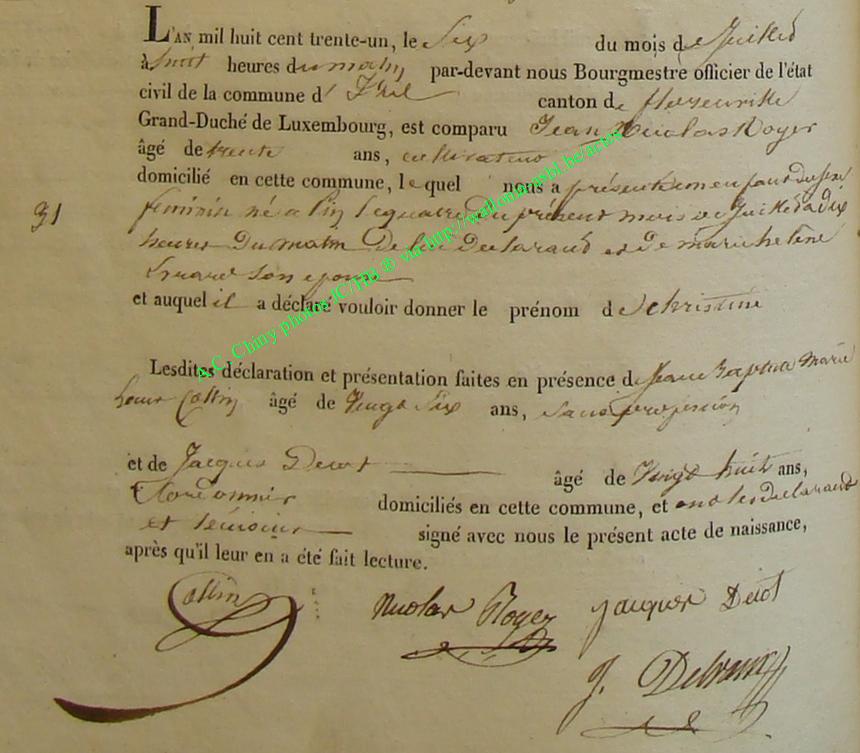 L'AN mil huit cent trente-un, le Six du mois de Juillet
à huit heures du matin par-devant nous Bourgmestre officier de l'état
civil de la commune d' canton de florenville
Grand-Duché de Luxembourg, est comparu Jean Nicolas Royer
âgé de trente ans, cultivateur
domicilié en cette commune, lequel nous a présenté un enfant du sexe
31 feminin né a le quatre du présent mois de Juillet a dix
heures du matin de lui declarant et de marie helene
son epouse
et auquel il a déclaré vouloir donner le prénom de christine
Lesdites déclaration et présentation faites en présence de Jean Baptiste Marie
Collin âgé de Vingt Six ans, sans profession
et de Jacques Derot âgé de Vingt huit ans,
Cordonnier domiciliés en cette commune, et ont les declarant
et temoins signé avec nous le présent acte de naissance,
après qu'il leur en a été fait lecture.
Collin Nicolas Royer Jacques Derot
A.C. Chiny photos IC/FB ® via http://wallonia.asbl.be/actes